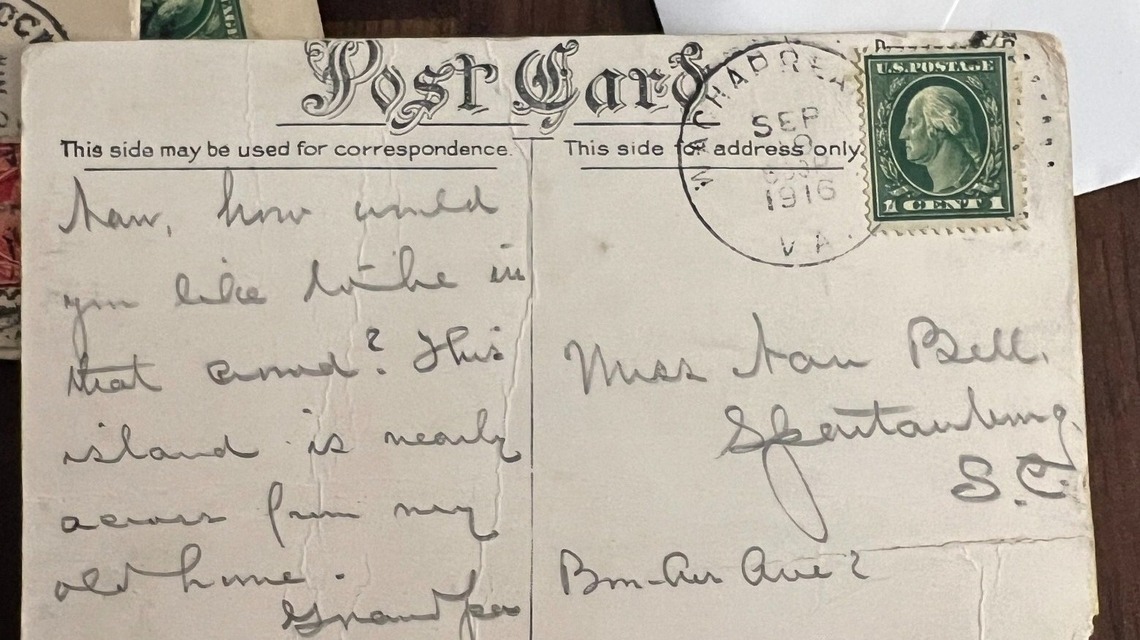 Post Card
This side may be used for correspondence.
Nan, how would
you like to be in
that crowd? This
island is nearly
across from my
old home.
Grandpa
This side for address only
WACHAPREA
SEP
1916
VA.
U.S. POSTAGE
1 CENT 1
Miss Nan Bell.
Spartanburg,
S.C.
Bon-Air Ave?